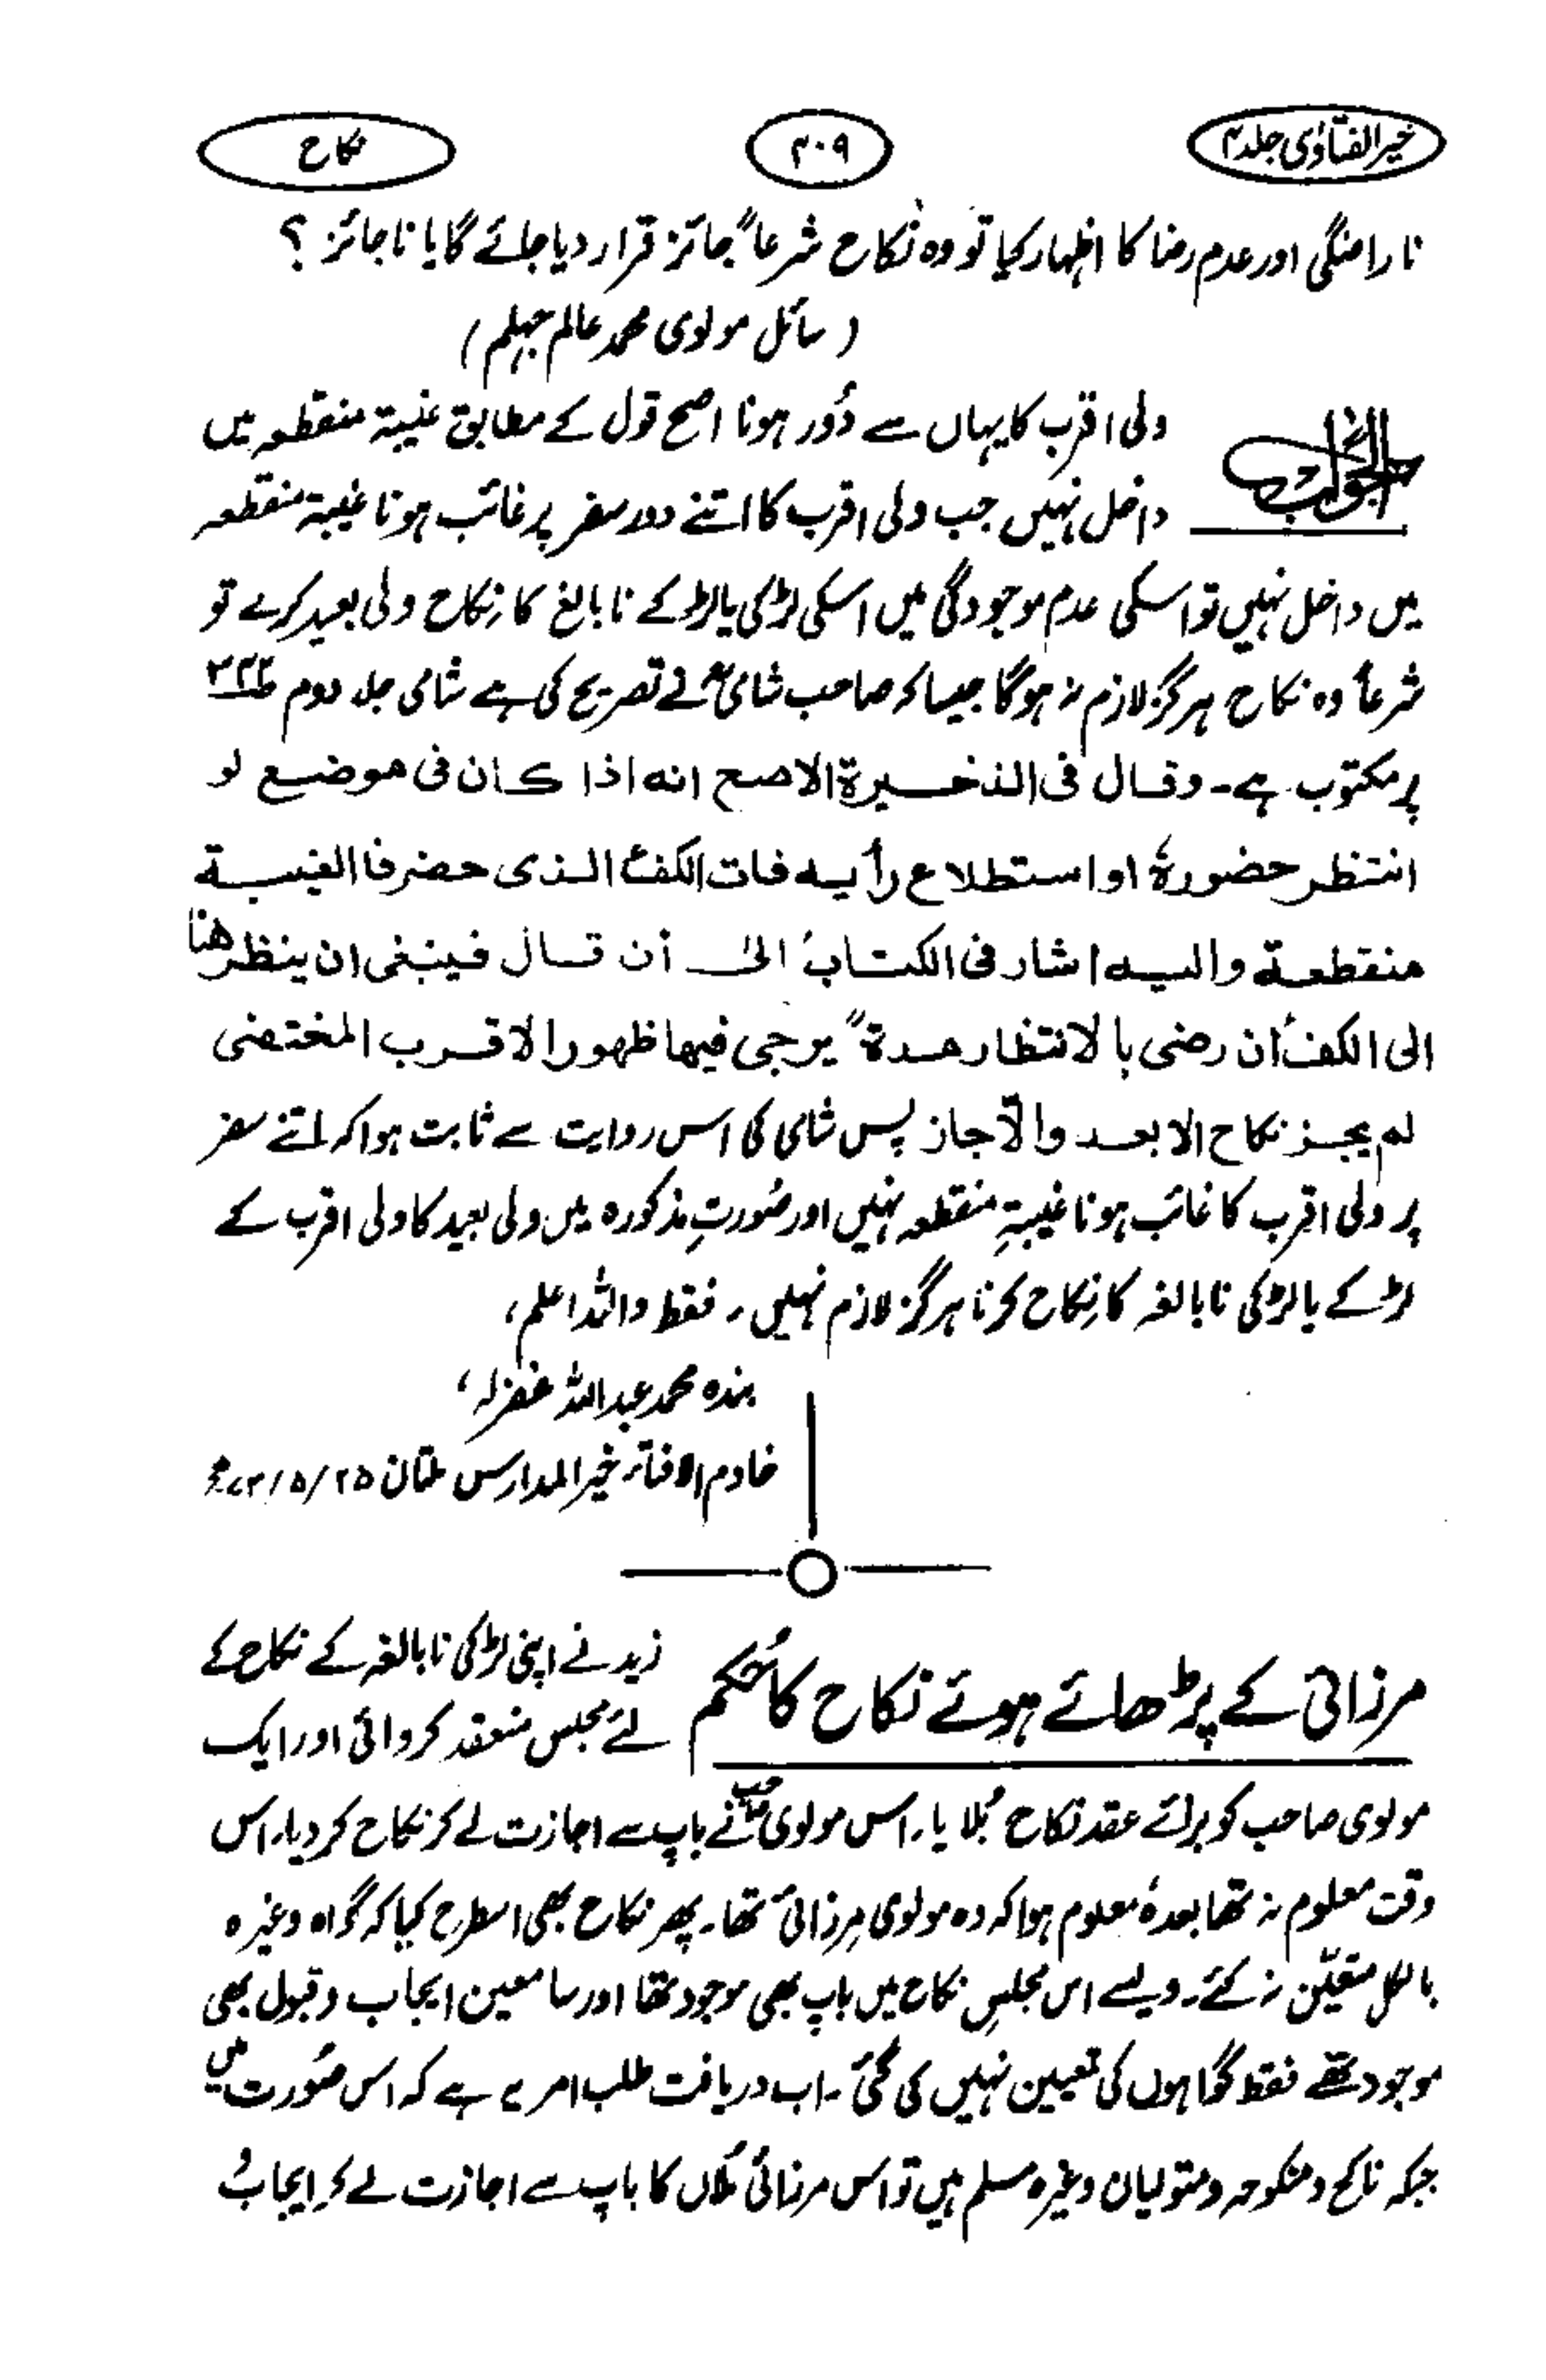 خیر الفتاوٰی جلد ۴
۲۰۹
نکاح
ناراضگی اور عدم رضا کا اظہار کیا تو وہ نکاح شرعاً جائز قرار دیا جائے گا یا ناجائز ؟
( سائل مولوی محمد عالم جہلم )
الجواب
ولی اقرب کا یہاں سے دُور ہونا اصح قول کے مطابق غیبۃ منقطعہ میں
داخل نہیں جب ولی اقرب کا اتنے دور سفر پر غائب ہونا غیبۃ منقطعہ
میں داخل نہیں تو اسکی عدم موجودگی میں اسکی لڑکی یا لڑکے نابالغ کا نِکاح ولی بعید کرے تو
شرعاً وہ نکاح ہرگز لازم نہ ہوگا جیسا کہ صاحب شامیؒ نے تصریح کی ہے شامی جلد دوم
پر مکتوب ہے۔ وقال فی الذخیرۃ الاصح انہ اذا کان فی موضع لو
انتظر حضورہٗ او استطلاع رأیہ فات الکفء الذی حضر فا الغیبۃ
منقطعۃ والیہ اشار فی الکتاب الیٰ أن قال فینبغی ان ینظر ھنا
الی الکفء أن رضی بالانتظار مدۃً یرجی فیھا ظھور الاقرب المختفی
لم یجز نکاح الابعد والّا جاز پس شامی کی اس روایت سے ثابت ہوا کہ اتنے سفر
پر ولی اقرب کا غائب ہونا غیبۃِ منقطعہ نہیں اور صُورتِ مذکورہ میں ولی بعید کا ولی اقرب کے
لڑکے یا لڑکی نابالغہ کا نِکاح کرنا ہرگز لازم نہیں ۔ فقط واللہ اعلم ،
بندہ محمد عبد اللہ غفرلہ ،
خادم الافتاء خیر المدارس ملتان ۲۵/۵/
مرزائی کے پڑھائے ہوئے نکاح کا حُکم
زید نے اپنی لڑکی نابالغہ کے نکاح کے
لئے مجلس منعقد کروائی اور ایک
مولوی صاحب کو برائے عقد نکاح بُلایا۔ اس مولوی صاحب نے باپ سے اجازت لے کر نکاح کر دیا۔ اس
وقت معلوم نہ تھا بعدہٗ معلوم ہوا کہ وہ مولوی مِرزائی تھا۔ پھر نکاح بھی اسطرح کیا کہ گواہ وغیرہ
بالکل متعیّن نہ کئے۔ ویسے اس مجلسِ نکاح میں باپ بھی موجود تھا اور سامعین ایجاب و قبول بھی
موجود تھے فقط گواہوں کی تعیین نہیں کی گئی ۔ اب دریافت طلب امر یہ ہے کہ اس صُورت میں
جبکہ ناکح و منکوحہ و متولیان وغیرہ مسلم ہیں تو اس مرزائی مُلّاں کا باپ سے اجازت لے کر ایجاب و